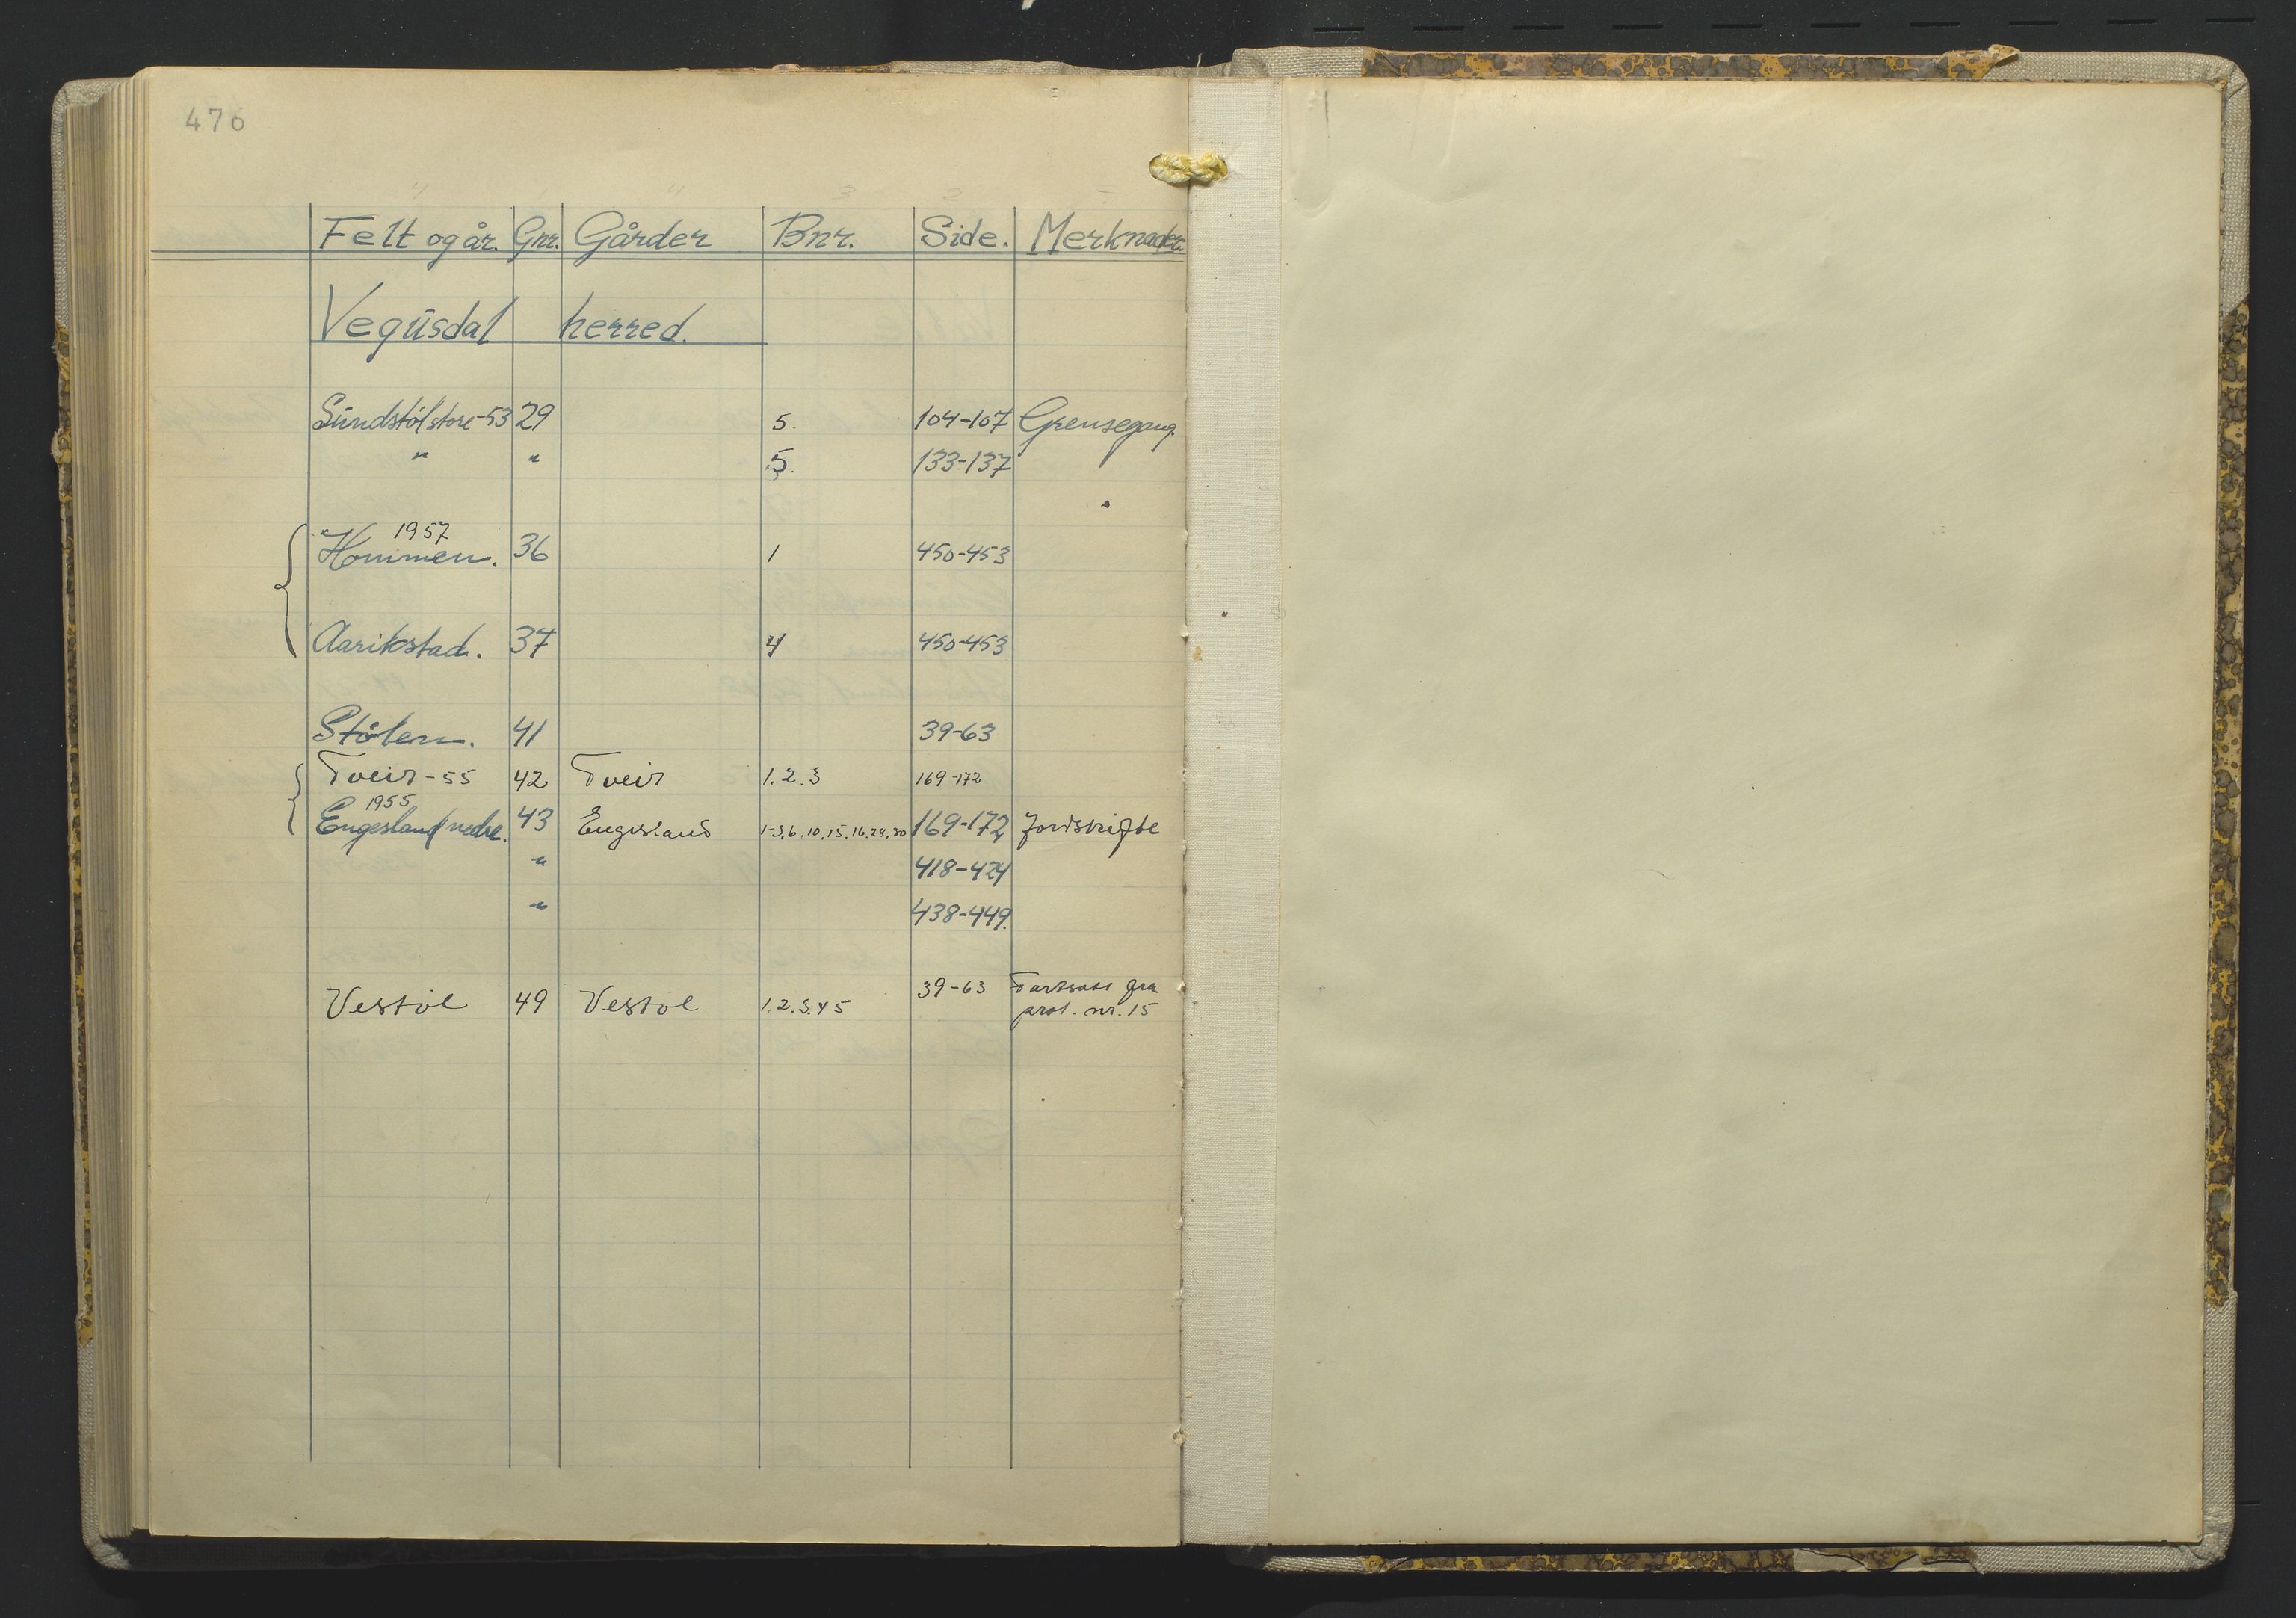 476
Felt og år. Gnr. Gårder Bnr. Side. Merknader.
Vegusdal herred.
Sundstöl store-53 29 5. 104-107 Grensegang.
" " 5. 133-137
1957
Hommen. 36 1 450-453
Aarikstad. 37 4 450-453
Stölen. 41 39-63
Tveit-55 42 Tveit 1.2.3 169-172
1955
Engesland nedre. 43 Engesland 1-3,6,10,15,16,28,30 169-172 Jordskifte
" 418-424
" 438-449.
Vestöl 49 Vestöl 1.2.3.4 5 39-63 Fortsatt fra
prot. nr. 15